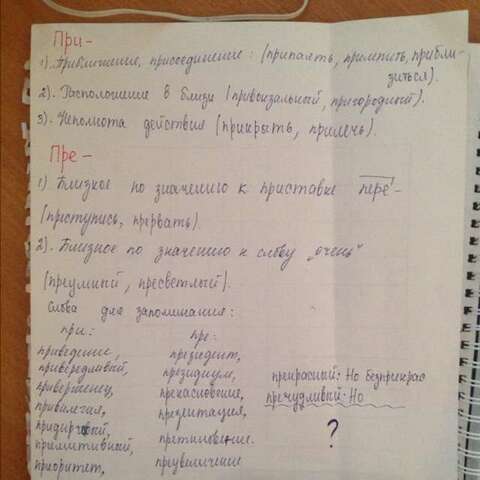 При-
1). Приближение, присоединение: (припаять, прилепить, прибли-
зиться).
2). Расположение в близи (привокзальный, пригородный).
3). Неполнота действия (прикрыть, прилечь).
Пре-
1) Близкое по значению к приставке пере-
(преступись, прервать).
2). Близкое по значению к слову „очень"
(преумный, пресветлый).
Слова для запоминания:
при: пре:
приведение, президент,
привередливый, президиум, прекрасный: Но безприкрас
приверженец, прекословение, пречудливый: Но
привилегия, презентация,
придирчивый, преткновение. ?
примитивный, преувеличение
приоритет,